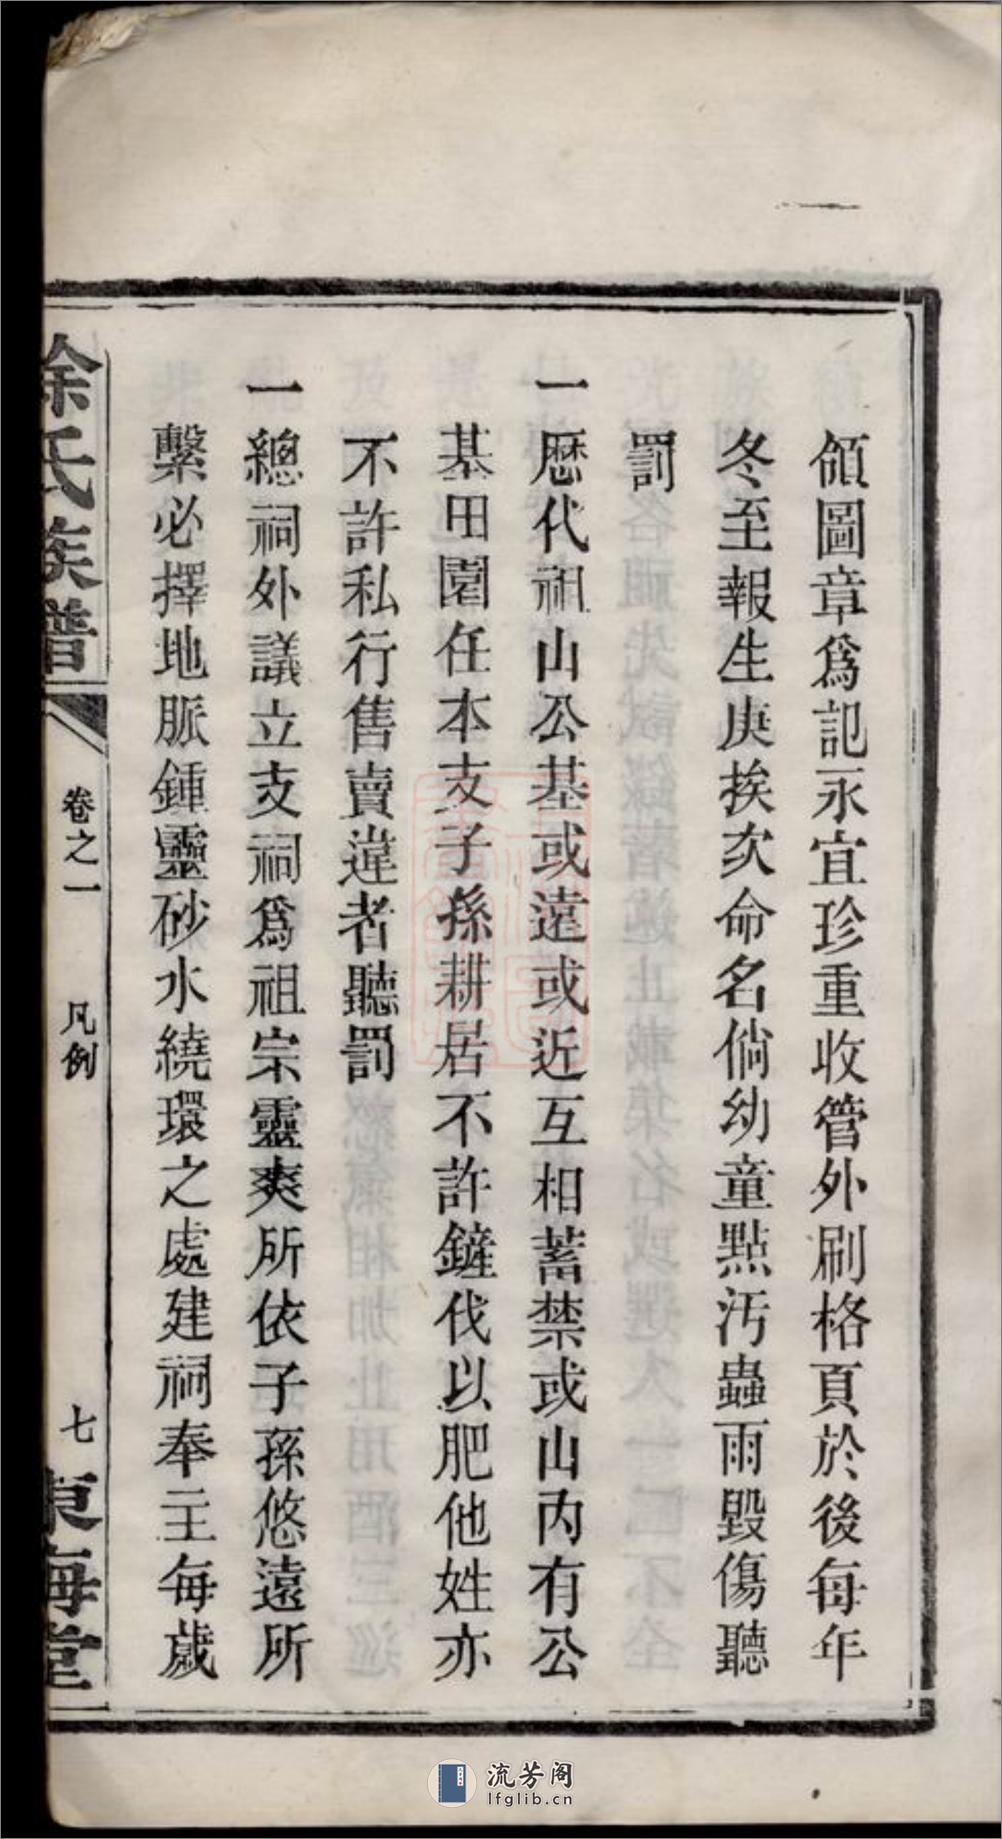 領圖章爲記永宜珍重收管外刷格頁於後每年
冬至報生庚挨次命名倘幼童點汚蟲雨毀傷聽
罰
一歷代祖山公基或遠或近互相蓄禁或山內有公
基田園任本支子孫耕居不許鏟伐以肥他姓亦
不許私行售賣違者聽罰
一總祠外議立支祠爲祖宗靈爽所依子孫悠遠所
繫必擇地脈鍾靈砂水繞環之處建祠奉主每歲
徐氏族譜
卷之一 凡例
七
東海堂
流芳阁
lfglib.cn